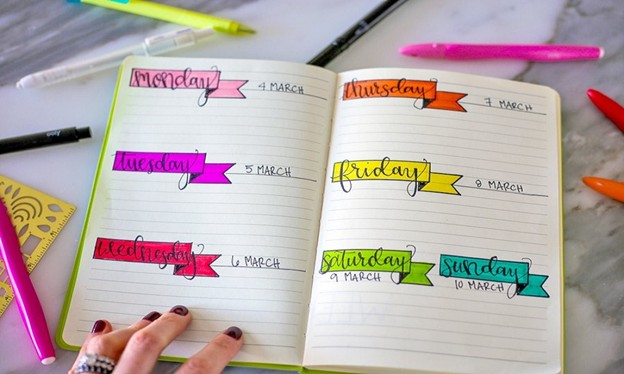 monday 4 MARCH
tuesday 5 MARCH
wednesday 6 MARCH
thursday 7 MARCH
friday 8 MARCH
saturday
9 MARCH
sunday
10 MARCH